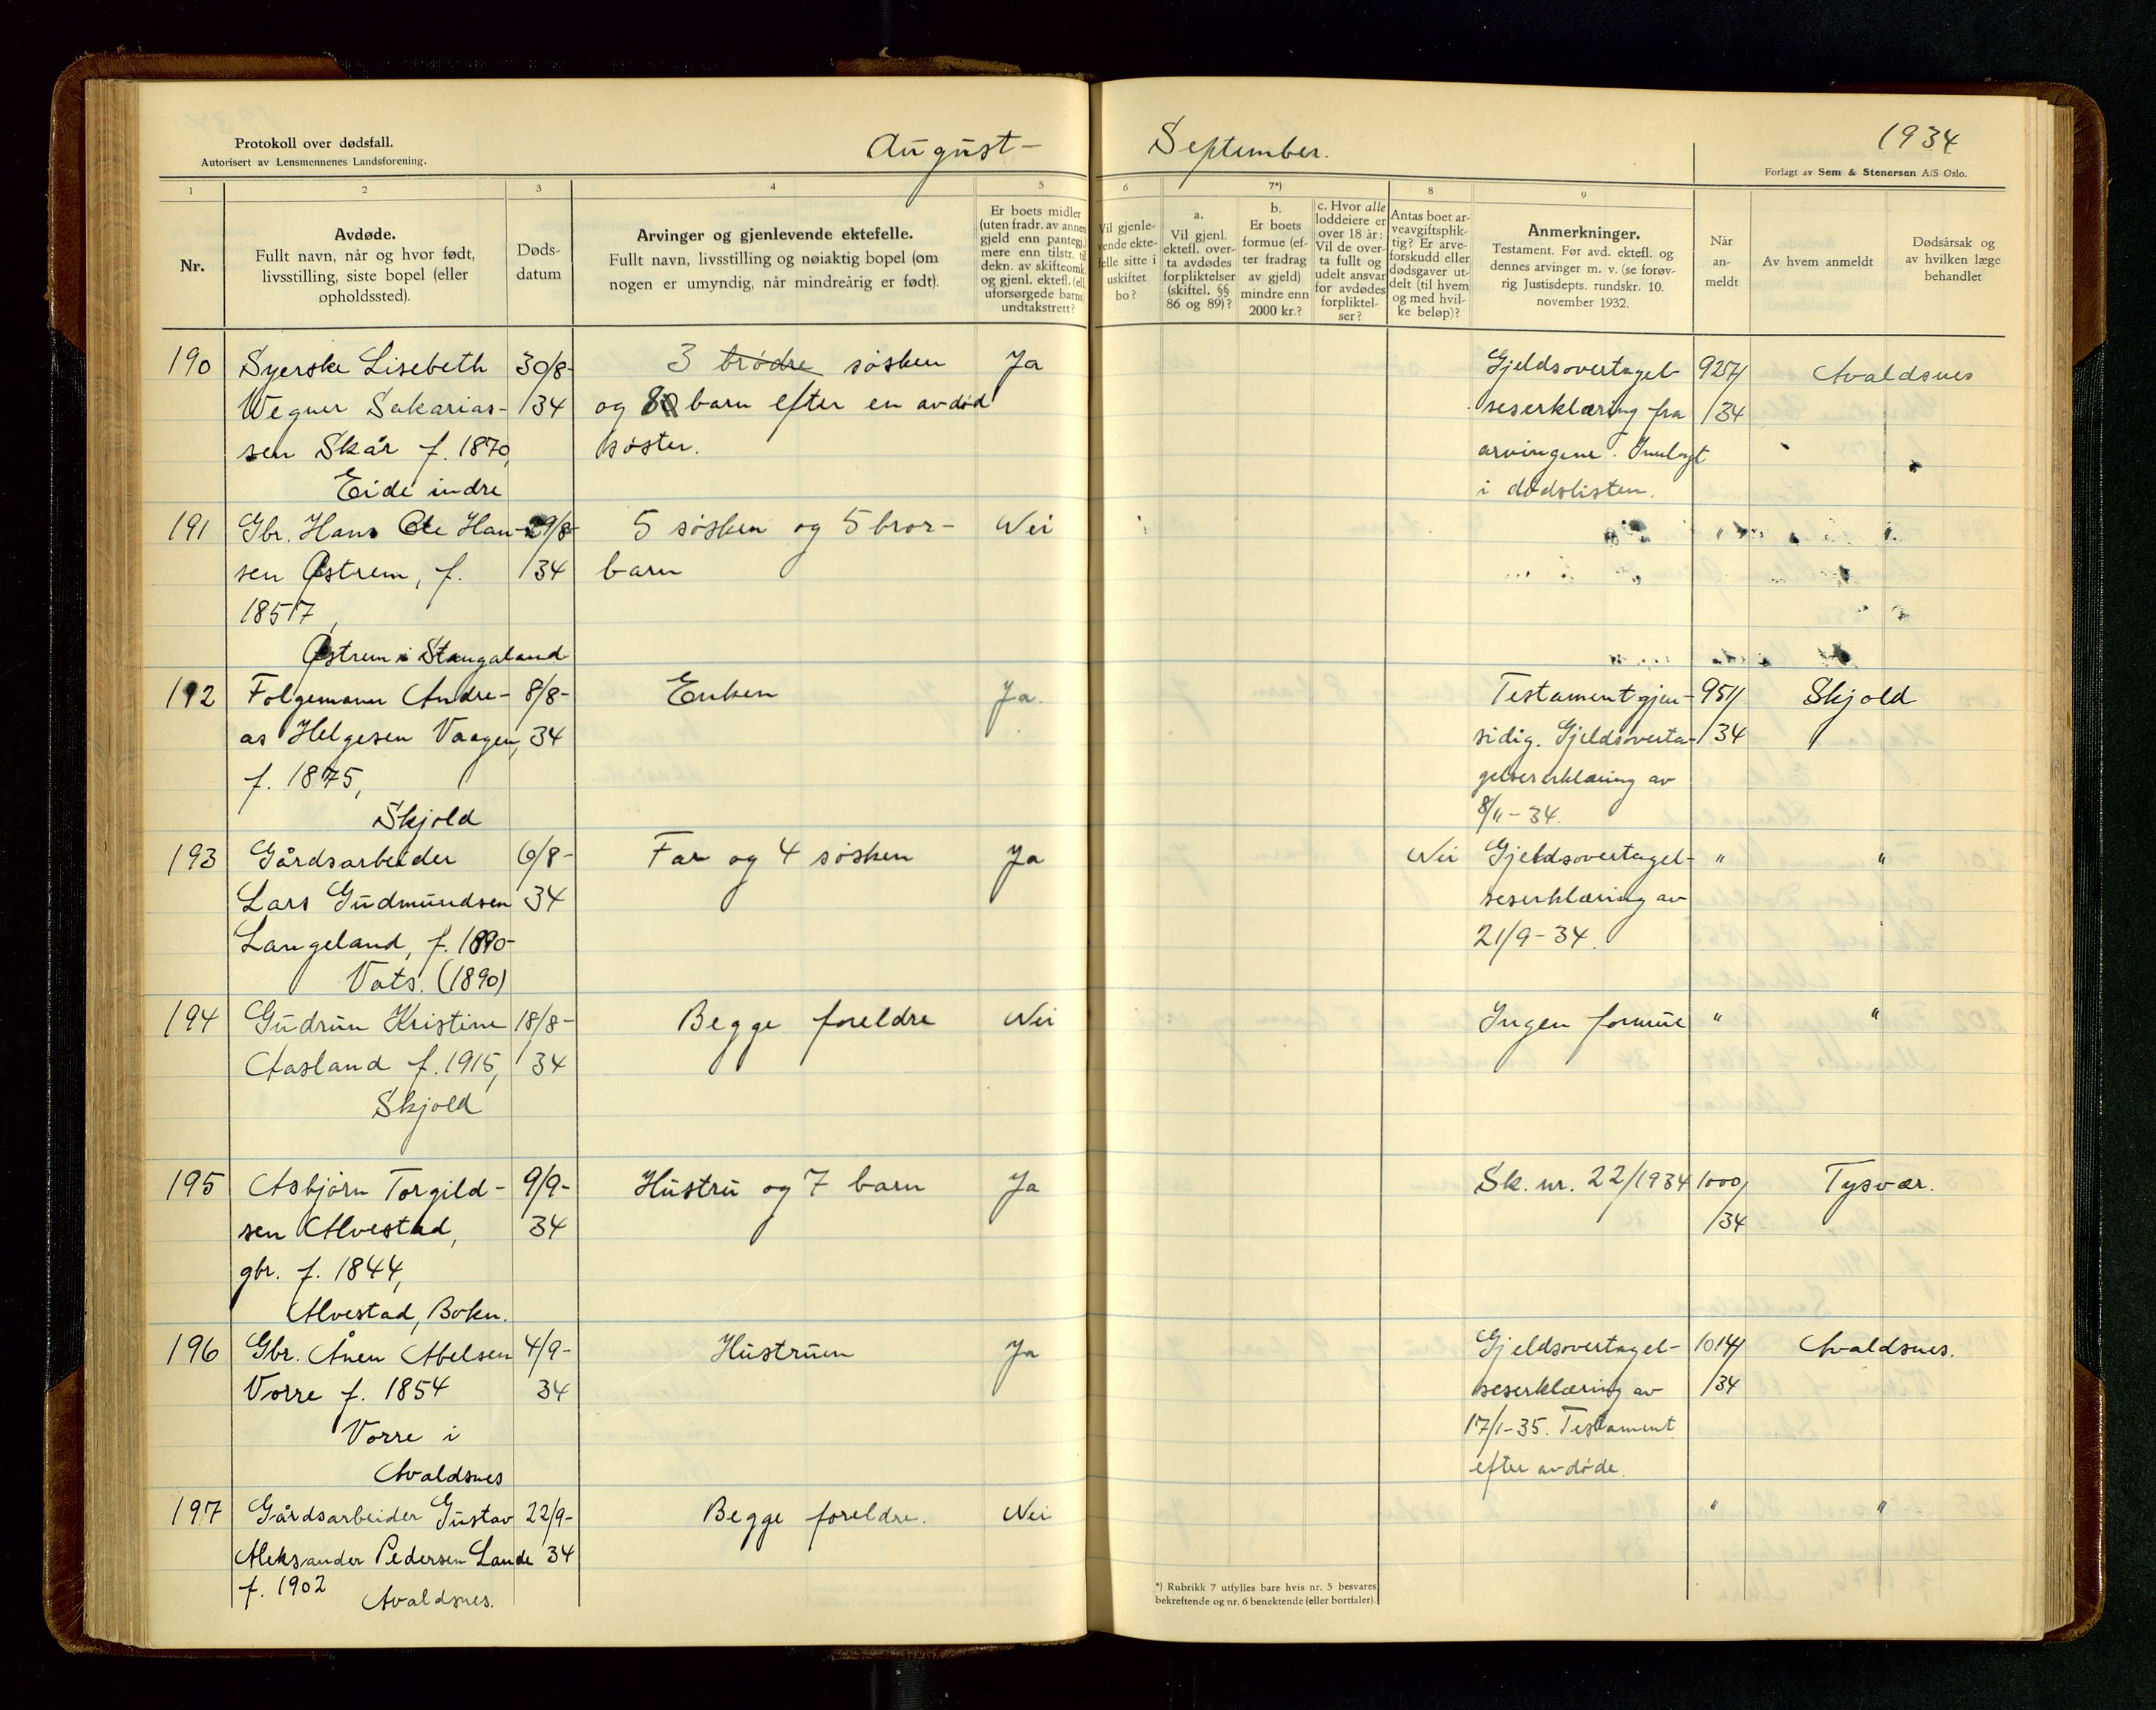 Protokoll over dødsfall.
Autorisert av Lensmennenes Landsforening.
August –
September.
1934
Forlagt av Sem & Stenersen A/S Oslo.
1 2 3 4 5 6 7*) 8 9
Nr.
Avdøde.
Fullt navn, når og hvor født,
livsstilling, siste bopel (eller
opholdssted).
Døds-
datum
Arvinger og gjenlevende ektefelle.
Fullt navn, livsstilling og nøiaktig bopel (om
nogen er umyndig, når mindreårig er født).
Er boets midler
(uten fradr. av annen
gjeld enn pantegj.)
mere enn tilstr. til
dekn. av skifteomk.
og gjenl. ektef. (ell.
uforsørgede barns)
undtakstrett?
Vil gjenle-
vende ekte-
felle sitte i
uskiftet
bo?
a.
Vil gjenl.
ektefl. over-
ta avdødes
forpliktelser
(skiftel. §§
86 og 89)?
b.
Er boets
formue (ef-
ter fradrag
av gjeld)
mindre enn
2000 kr.?
c. Hvor alle
loddeiere er
over 18 år:
Vil de over-
ta fullt og
udelt ansvar
for avdødes
forpliktel-
ser?
Antas boet ar-
veavgiftsplik-
tig? Er arve-
forskudd eller
dødsgaver ut-
delt (til hvem
og med hvil-
ke beløp)?
Anmerkninger.
Testament. Før avd. ektefl. og
dennes arvinger m. v. (se forøv-
rig Justisdepts. rundskr. 10.
november 1932.
Når
an-
meldt
Av hvem anmeldt
Dødsårsak og
av hvilken læge
behandlet
190 Syerske Lisebeth 30/8- 3 brødre søsken Ja Gjeldsovertagel- 925/ Avaldsnes
Wegner Sakarias- /34 og 8 barn efter en avdød seserklæring fra /34
sen Skår f. 1870, søster. arvingene. Innlagt
Eide indre i dødslisten.
191 Gbr. Hans Ole Han- 29/8- 5 søsken og 5 bror- Nei " "
sen Østrem, f. /34 barn
1857,
Østrem i Stangaland
192 Følgemann Andre- 8/8- Enken Ja. Testament gjen- 951/ Skjold
as Helgesen Vaagen, 34 sidig. Gjeldsoverta- /34
f. 1875, gelseserklæring av
Skjold 8/11-34.
193 Gårdsarbeider 6/8- Far og 4 søsken Ja Nei Gjeldsovertagel- " "
Lars Gudmundsen 34 seserklæring av
Langeland, f. 1890- 21/9-34.
Vats. (1890)
194 Gudrun Kristine 18/8- Begge foreldre Nei Ingen formue " "
Aasland f. 1915, 34
Skjold
195 Asbjørn Torgild- 9/9- Hustru og 7 barn Ja Sk. nr. 22/1934 1000/ Tysvær.
sen Alvestad, 34 /34
gbr. f. 1844,
Alvestad, Bokn.
196 Gbr. Ånen Abelsen 4/9- Hustruen Ja Gjeldsovertagel- 1014/ Avaldsnes.
Vorre f. 1854 34 seserklæring av /34
Vorre i 17/1-35. Testament
Avaldsnes efter avdøde.
197 Gårdsarbeider Gustav 22/9- Begge foreldre. Nei " "
Aleksander Pedersen Lande 34
f. 1902 Avaldsnes.
*) Rubrikk 7 utfylles bare hvis nr. 5 besvares
bekreftende og nr. 6 benektende (eller bortfaler).